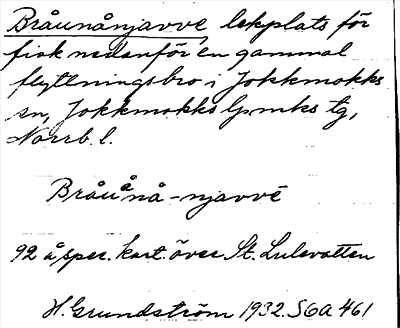 Bråunånjavvē, lekplats för
fisk nedanför en gammal
flyttningsbro i Jokkmokks
sn, Jokkmokks lpmks tg,
Norrb. l.
Bråuånå-njavvē
92 å spec. kart. över St. Lulevatten
H. Grundström 1932. S6A 461